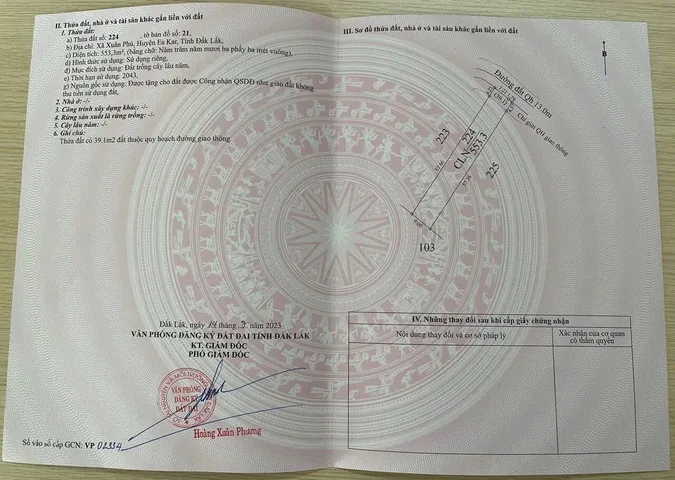 II. Thửa đất, nhà ở và tài sản khác gắn liền với đất
1. Thửa đất:
a) Thửa đất số: 224, tờ bản đồ số: 21,
b) Địa chỉ: Xã Xuân Phú, Huyện Ea Kar, Tỉnh Đắk Lắk,
c) Diện tích: 553,3m², (bằng chữ: Năm trăm năm mươi ba phẩy ba mét vuông),
d) Hình thức sử dụng: Sử dụng riêng,
đ) Mục đích sử dụng: Đất trồng cây lâu năm,
e) Thời hạn sử dụng: 2043,
g) Nguồn gốc sử dụng: Được tặng cho đất được Công nhận QSDĐ như giao đất không
thu tiền sử dụng đất,
2. Nhà ở: -/-
3. Công trình xây dựng khác: -/-
4. Rừng sản xuất là rừng trồng: -/-
5. Cây lâu năm: -/-
6. Ghi chú:
Thửa đất có 39.1m2 đất thuộc quy hoạch đường giao thông
Đắk Lắk, ngày 14 tháng 3 năm 2023
VĂN PHÒNG ĐĂNG KÝ ĐẤT ĐAI TỈNH ĐẮK LẮK
KT. GIÁM ĐỐC
PHÓ GIÁM ĐỐC
VĂN PHÒNG
ĐĂNG KÝ
ĐẤT ĐAI
Hoàng Xuân Phương
Số vào sổ cấp GCN: VP 02334
III. Sơ đồ thửa đất, nhà ở và tài sản khác gắn liền với đất
B
Đường đất Qh 13.0m
Chỉ giới QH giao thông
(39.1)
223
CLN 224
553.3
225
57.56
103
IV. Những thay đổi sau khi cấp giấy chứng nhận
Nội dung thay đổi và cơ sở pháp lý
Xác nhận của cơ quan
có thẩm quyền